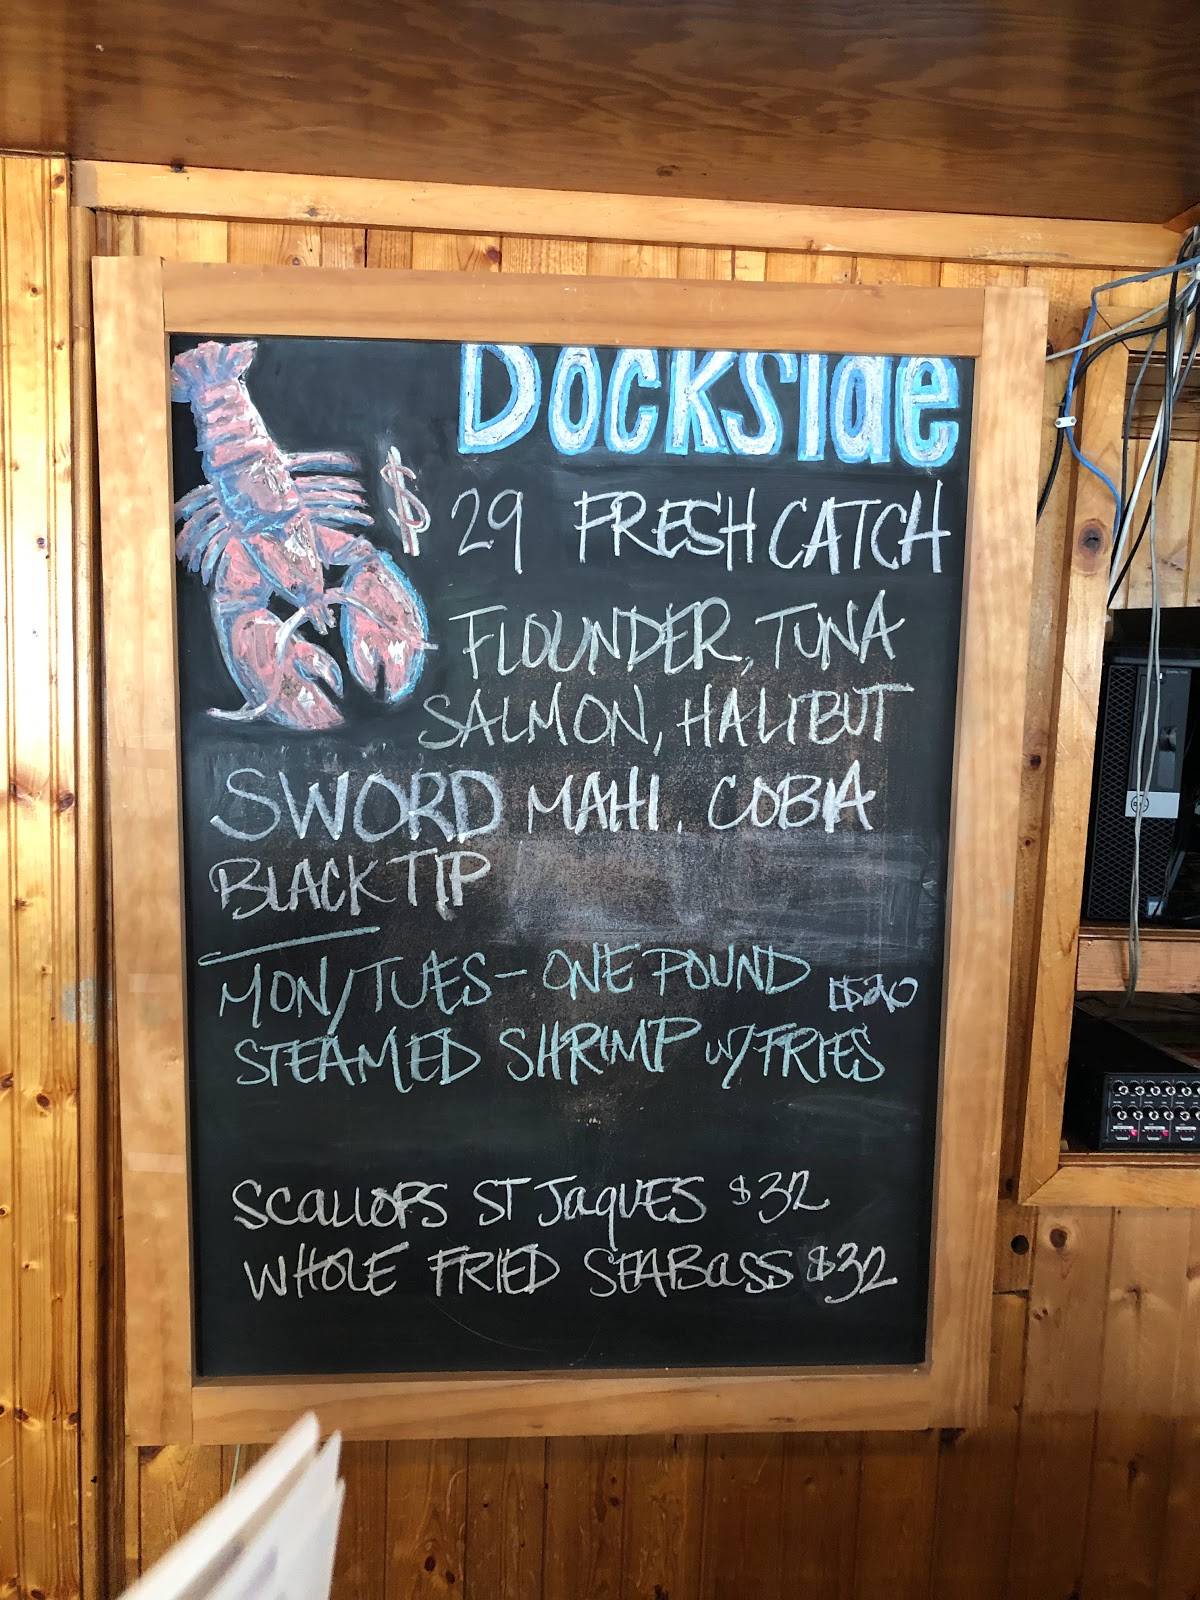 Dockside
$29 FRESH CATCH
FLOUNDER, TUNA
SALMON, HALIBUT
SWORD MAHI, COBIA
BLACK TIP
MON/TUES - ONE POUND $20
STEAMED SHRIMP W/FRIES
SCALLOPS ST JAQUES $32
WHOLE FRIED SEABASS $32